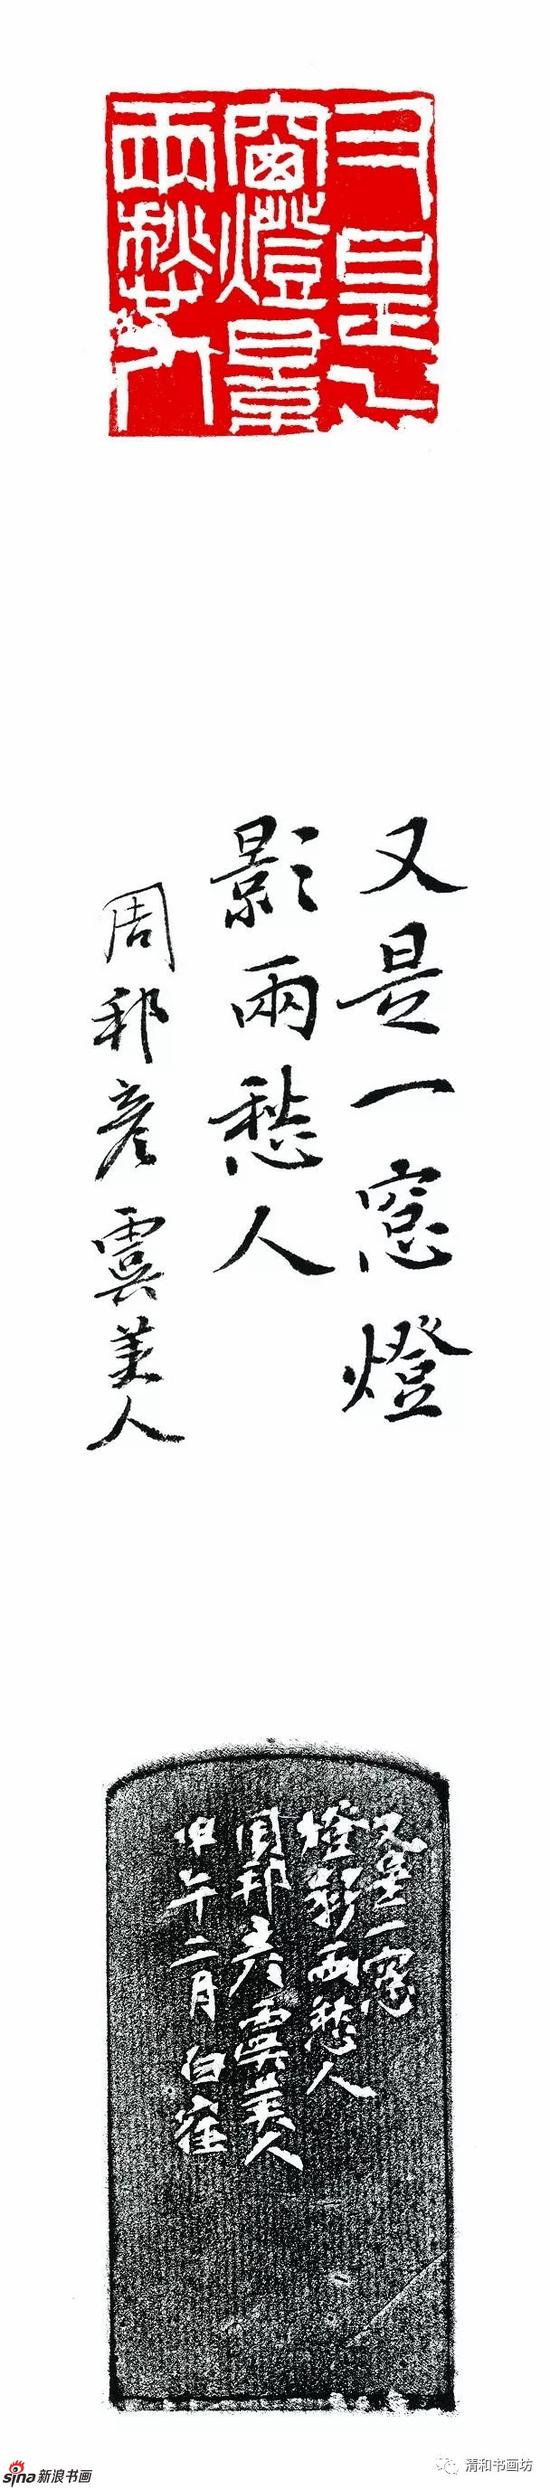 又是一
窗燈景
兩愁人
又是一窓燈
影兩愁人
周邦彦虞美人
又是一窓
燈影兩愁人
周邦彦虞美人
甲午二月白
sina新浪书画
清和书画坊